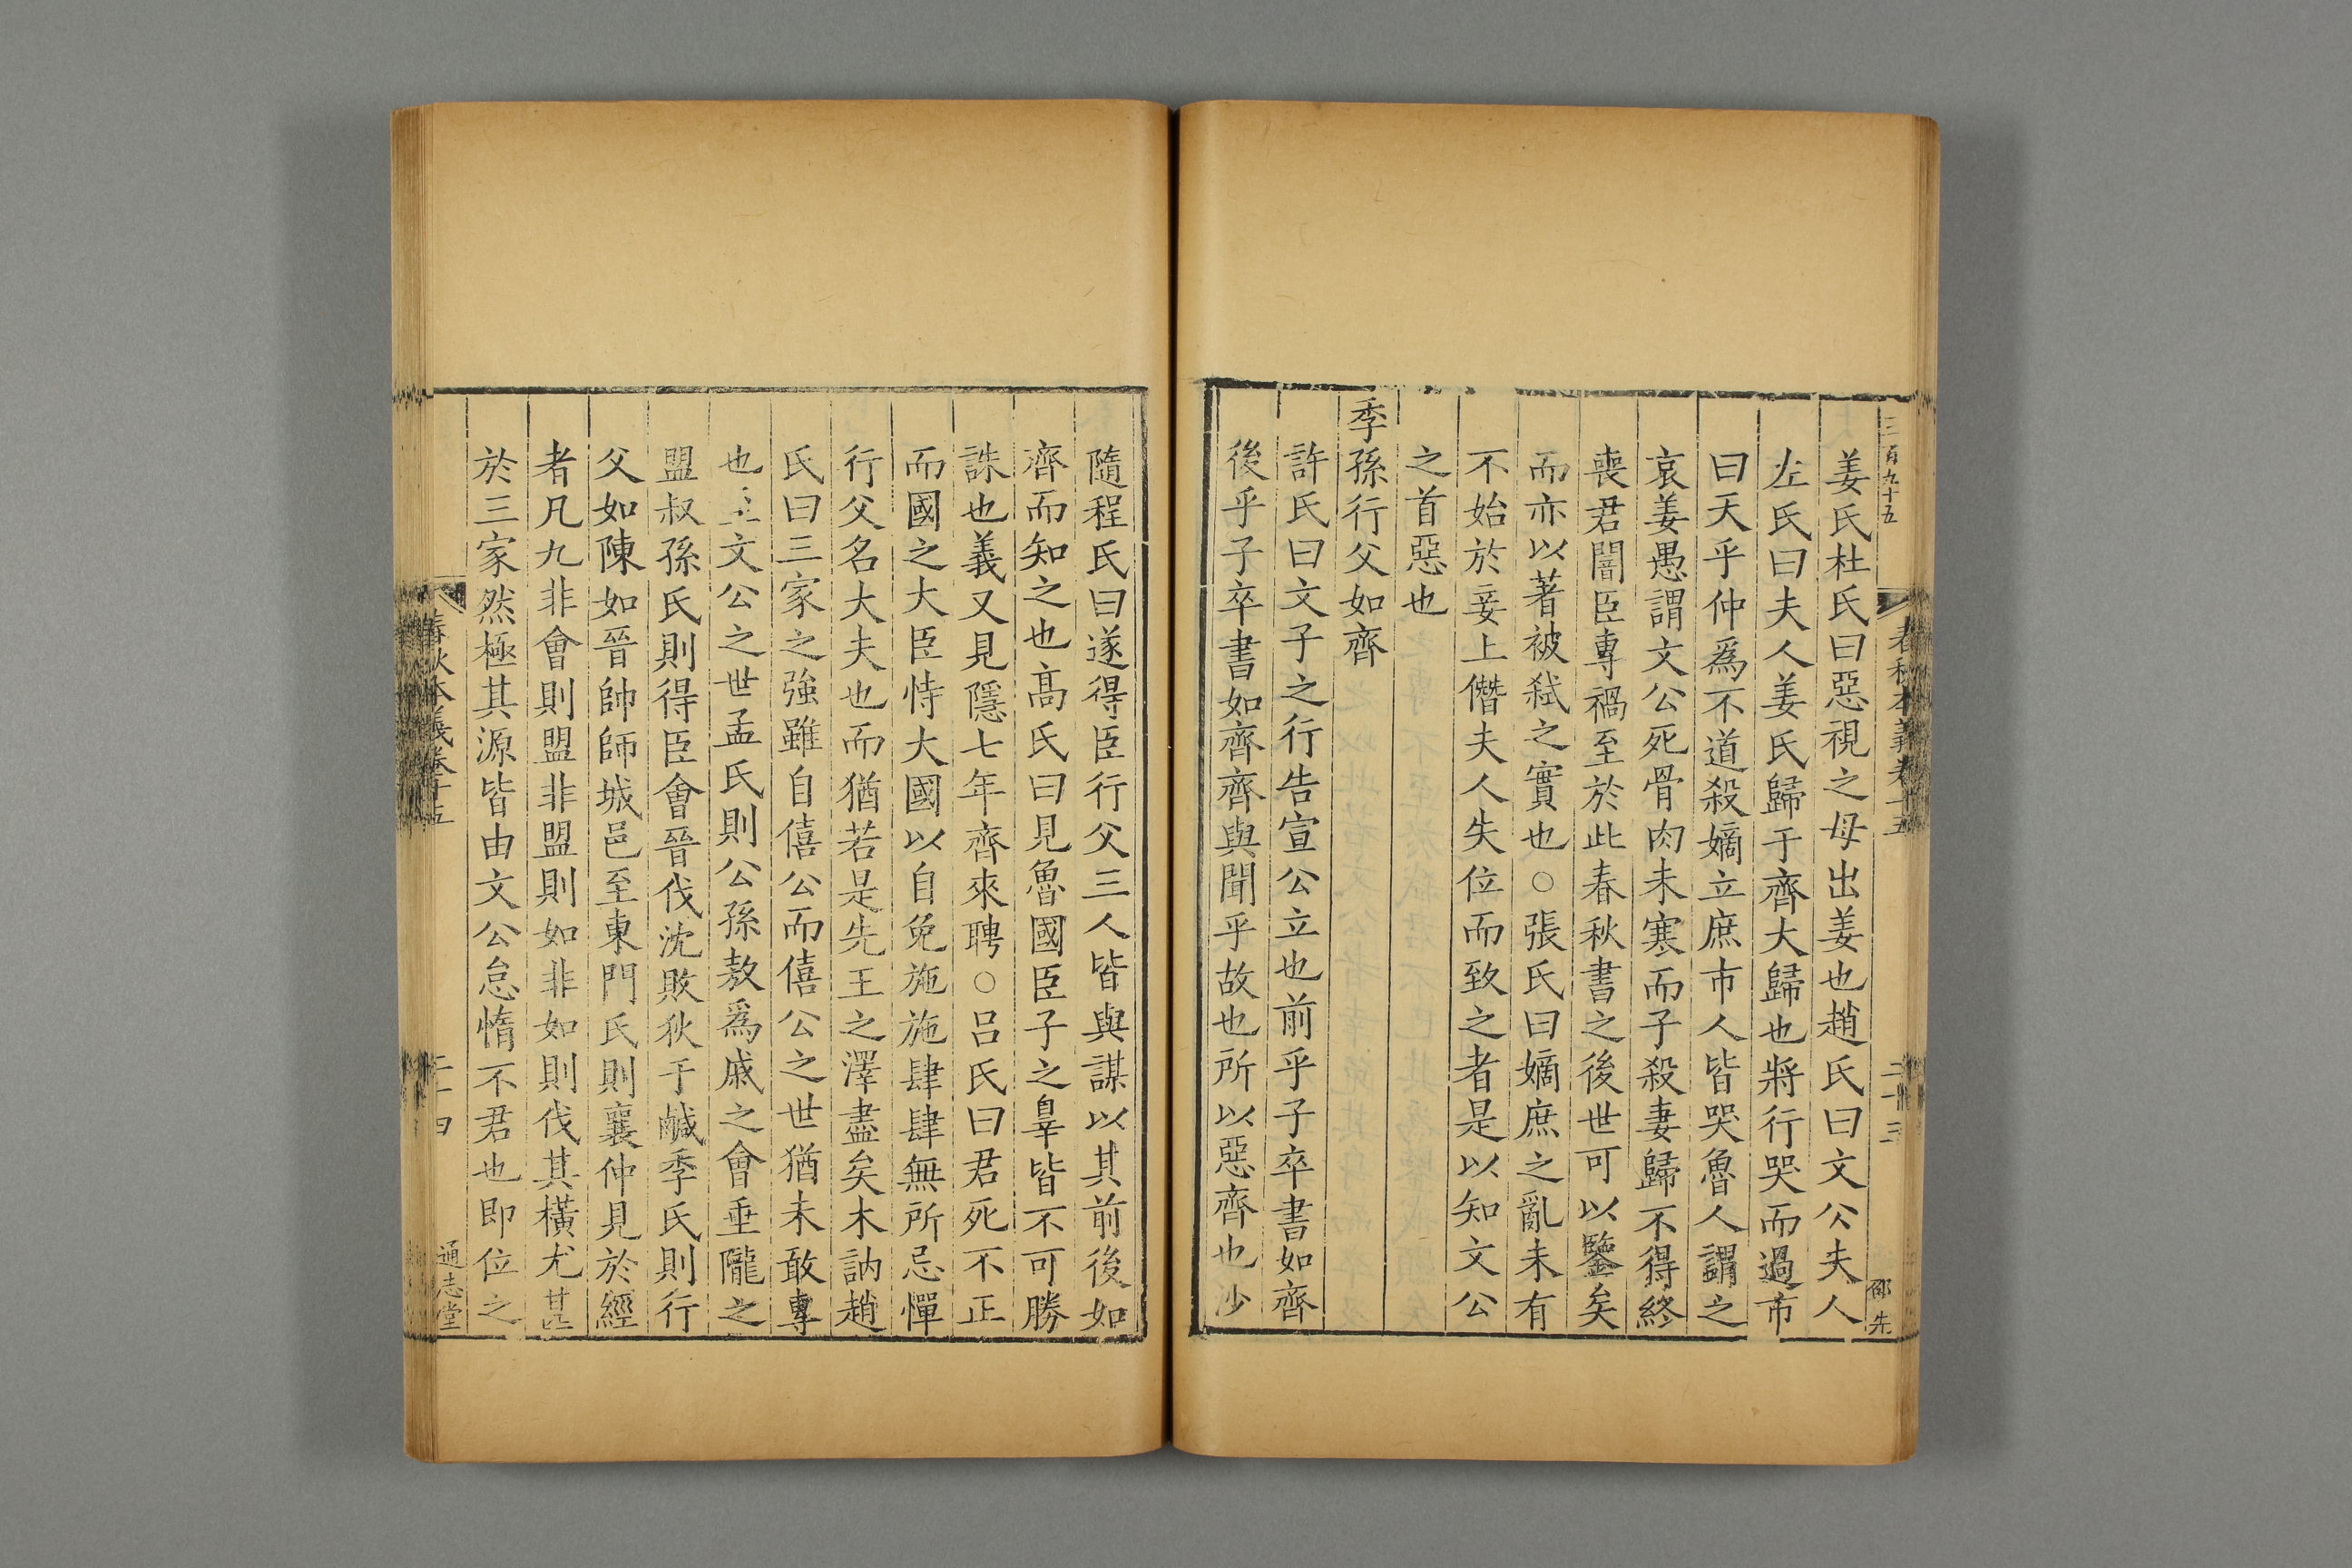 三百九十五
春秋本義卷十五
二十三
邵先
姜氏杜氏曰惡視之母出姜也趙氏曰文公夫人
左氏曰夫人姜氏歸于齊大歸也將行哭而過市
曰天乎仲爲不道殺嫡立庶市人皆哭魯人謂之
哀姜愚謂文公死骨肉未寒而子殺妻歸不得終
喪君闇臣專禍至於此春秋書之後世可以鑒矣
而亦以著被弒之實也○張氏曰嫡庶之亂未有
不始於妾上僭夫人失位而致之者是以知文公
之首惡也
季孫行父如齊
許氏曰文子之行告宣公立也前乎子卒書如齊
後乎子卒書如齊齊與聞乎故也所以惡齊也沙
隨程氏曰遂得臣行父三人皆與謀以其前後如
齊而知之也髙氏曰見魯國臣子之辠皆不可勝
誅也義又見隱七年齊來聘○呂氏曰君死不正
而國之大臣恃大國以自免施施肆肆無所忌憚
行父名大夫也而猶若是先王之澤盡矣木訥趙
氏曰三家之強雖自僖公而僖公之世猶未敢專
也文公之世孟氏則公孫敖爲戚之會垂隴之
盟叔孫氏則得臣會晉伐沈敗狄于鹹季氏則行
父如陳如晉帥師城邑至東門氏則襄仲見於經
者凡九非會則盟非盟則如非如則伐其橫尤甚
於三家然極其源皆由文公怠惰不君也即位之
春秋本義卷十五
二十四
通志堂